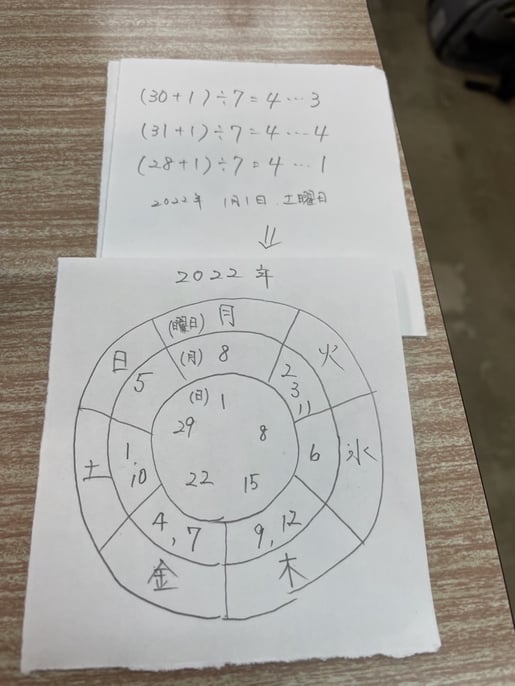 (30+1)÷7=4…3
(31+1)÷7=4…4
(28+1)÷7=4…1
2022年 1月1日.土曜日
⇓
2022年
(曜日)月
火
水
木
金
土
日
(月) 8
2
3
11
6
9,12
4,7
1
10
5
(日) 1
8
15
22
29